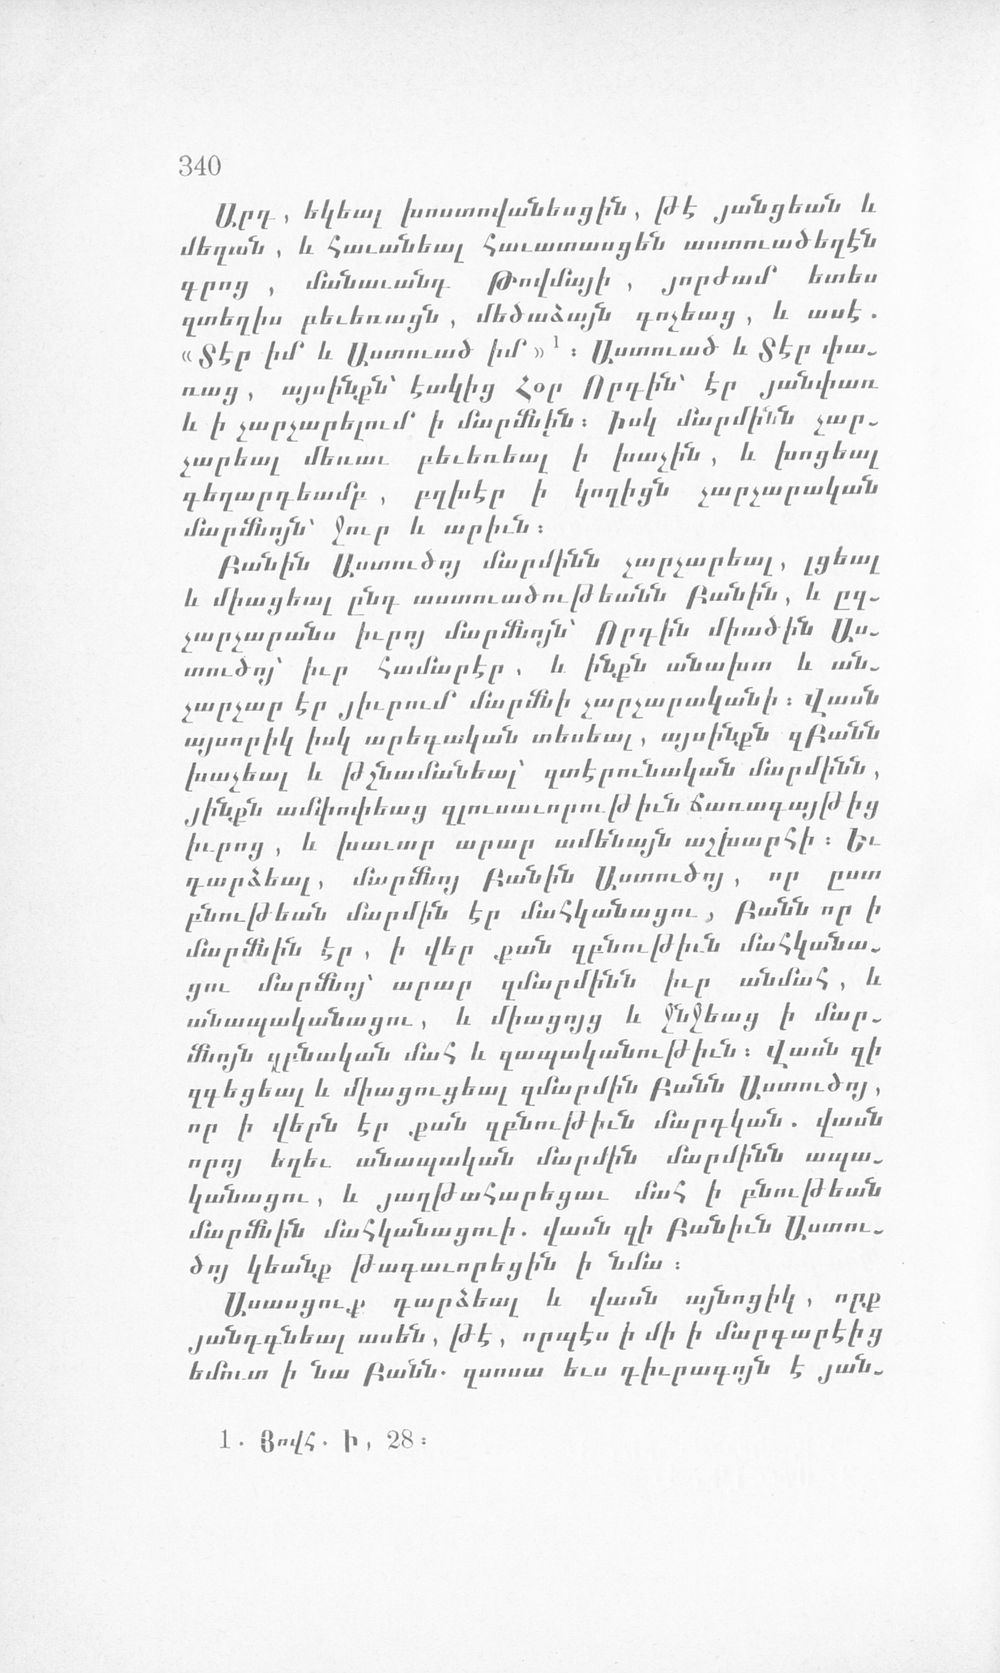 340
Արդ, եկեալ խոստովանեսցին, թէ յանցեան և
մեղան, և հաւանեալ հաւատասցեն աստուածեղէն
գրոց, մանաւանդ Թովմայի, յորժամ ետես
զտեղիս բեւեռացն, մեծաձայն գոչեաց, և ասէ.
«Տէր իմ և Աստուած իմ»1։ Աստուած և Տէր փա-
ռաց, այսինքն՝ էակից Հօր Որդին՝ էր յանփառ
և ի չարչարելում ի մարմնին։ Իսկ մարմինն չար-
չարեալ մեռաւ բեւեռեալ ի խաչին, և խոցեալ
գեղարդեամբ, բղխէր ի կողիցն չարչարական
մարմնոյն՝ ջուր և արիւն։
Բանին Աստուծոյ մարմինն չարչարեալ, լցեալ
և միացեալ ընդ աստուածութեանն Բանին, և ըզ-
չարչարանս իւրոյ մարմնոյն՝ Որդին միածին Աս-
տուծոյ՝ իւր համարէր, և ինքն անախտ և ան-
չարչար էր յիւրում մարմնի չարչարականի։ Վասն
այսորիկ իսկ արեգական տեսեալ, այսինքն զԲանն
խաչեալ և թշնամանեալ՝ զտէրունական մարմինն,
յինքն ամփոփեաց զլուսաւորութիւն ճառագայթից
իւրոց, և խաւար արար ամենայն աշխարհի։ Եւ
դարձեալ, մարմնոյ Բանին Աստուծոյ, որ ըստ
բնութեան մարմին էր մահկանացու, Բանն որ ի
մարմնին էր, ի վեր քան զբնութիւն մահկանա-
ցու մարմնոյ՝ արար զմարմինն իւր անմահ, և
անապականացու, և միացոյց և ջնջեաց ի մար-
մնոյն զբնական մահ և զապականութիւն։ Վասն զի
զգեցեալ և միացուցեալ զմարմին Բանն Աստուծոյ,
որ ի վերն էր քան զբնութիւն մարդկան. վասն
որոյ եղեւ անապական մարմին մարմինն ապա-
կանացու, և յաղթահարեցաւ մահ ի բնութեան
մարմնին մահկանացուի. վասն զի Բանիւն Աստու-
ծոյ կեանք թագաւորեցին ի նմա։
Ասասցուք դարձեալ և վասն այնոցիկ, որք
յանդգնեալ ասեն, թէ, որպէս ի մի ի մարգարէից
եմուտ ի նա Բանն. զսոսա եւս դիւրագոյն է յան-
1. Յովհ. Ի, 28։